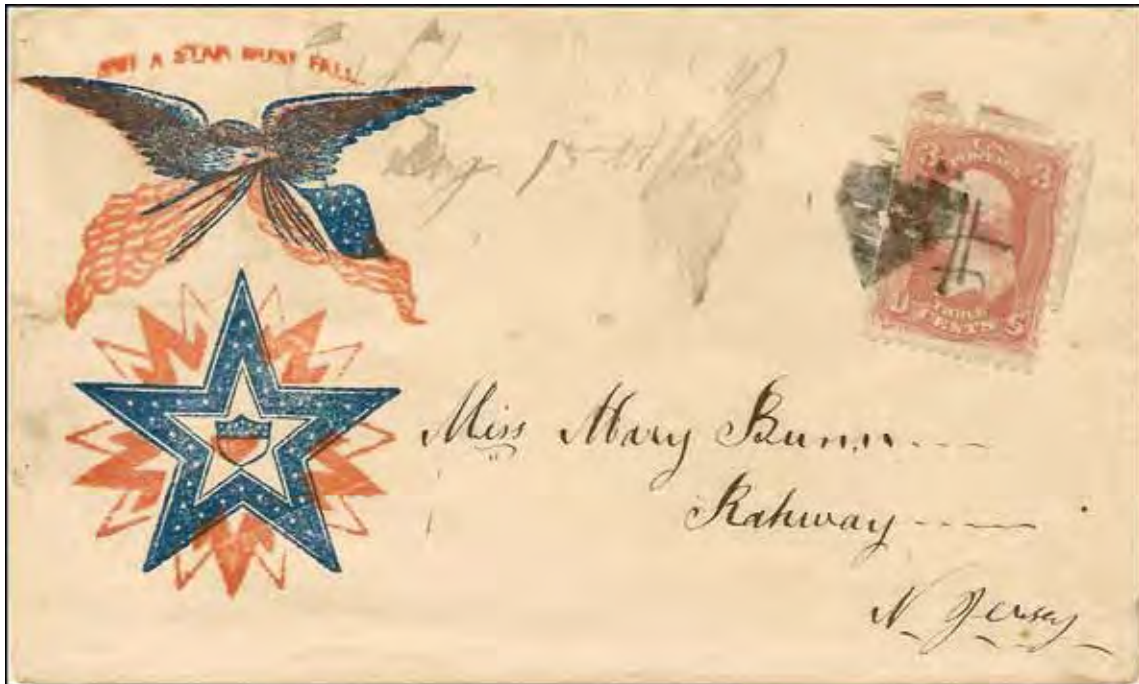 NOT A STAR MUST FALL.
3 U.S. POSTAGE 3
THREE
CENTS
Miss Mary Bunn
Rahway
N. Jersey